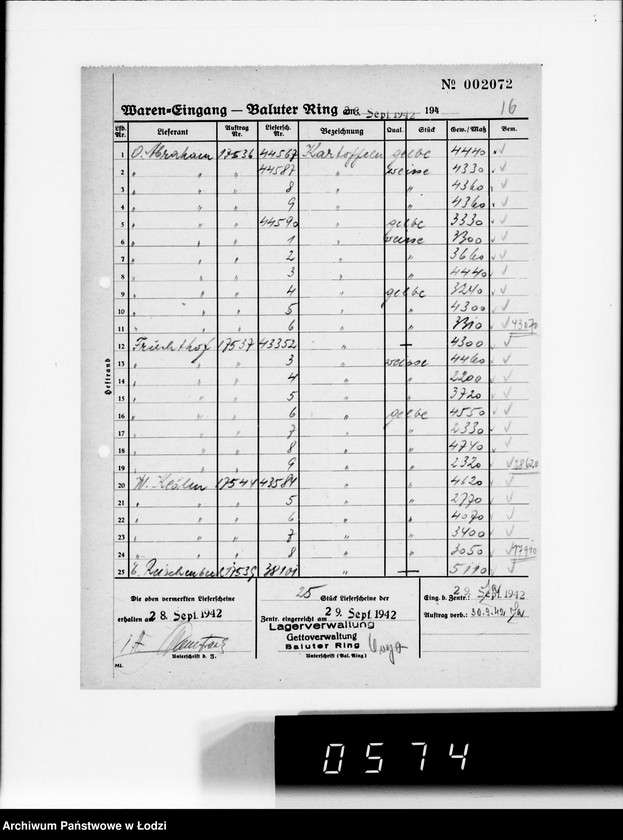 Nº 002072
Waren-Eingang — Baluter Ring am 28. Sept 1942 194
16
Lfd. Nr. Lieferant Auftrag Nr. Liefersch. Nr. Bezeichnung Qual. Stück Gew./Maß Bem.
1 O. Abraham 17536 44567 Kartoffeln gelbe 4440 √
2 " " " 44587 " weisse 4330 √
3 " " " 8 " " 4360 √
4 " " " 9 " " 4360 √
5 " " " 44590 " gelbe 3330 √
6 " " " 1 " weisse √
7 " " " 2 " " 3660 √
8 " " " 3 " " 4440 √
9 " " " 4 " gelbe 3240 √
10 " " " 5 " " 4300 √
11 " " " 6 " " √ 43070
12 17537 43352 " 4300 √
13 " " " 3 " weisse 4460 √
14 " " " 4 " " 2200 √
15 " " " 5 " " 3720 √
16 " " " 6 " gelbe 4550 √
17 " " " 7 " " 2330 √
18 " " " 8 " " 4740 √
19 " " " 9 " " 2320 √ 28620
20 W. 17544 43584 " " 4620 √
21 " " " 5 " " 2770 √
22 " " " 6 " " 4070 √
23 " " " 7 " " 3400 √
24 " " " 8 " " 3050 √ 17910
25 17539 38101 " 5110 √
Heftrand
Die oben vermerkten Lieferscheine
erhalten am 28 Sept 1942
Unterschrift d. J.
25 Stück Lieferscheine der
Zentr. eingereicht am 29. Sept 1942
Lagerverwaltung
Gettoverwaltung
Baluter Ring
Unterschrift (Bal. Ring)
Eing. b. Zentr.: 29. Sept 1942
Auftrag verb.: 30.9.42
0574
Archiwum Państwowe w Łodzi